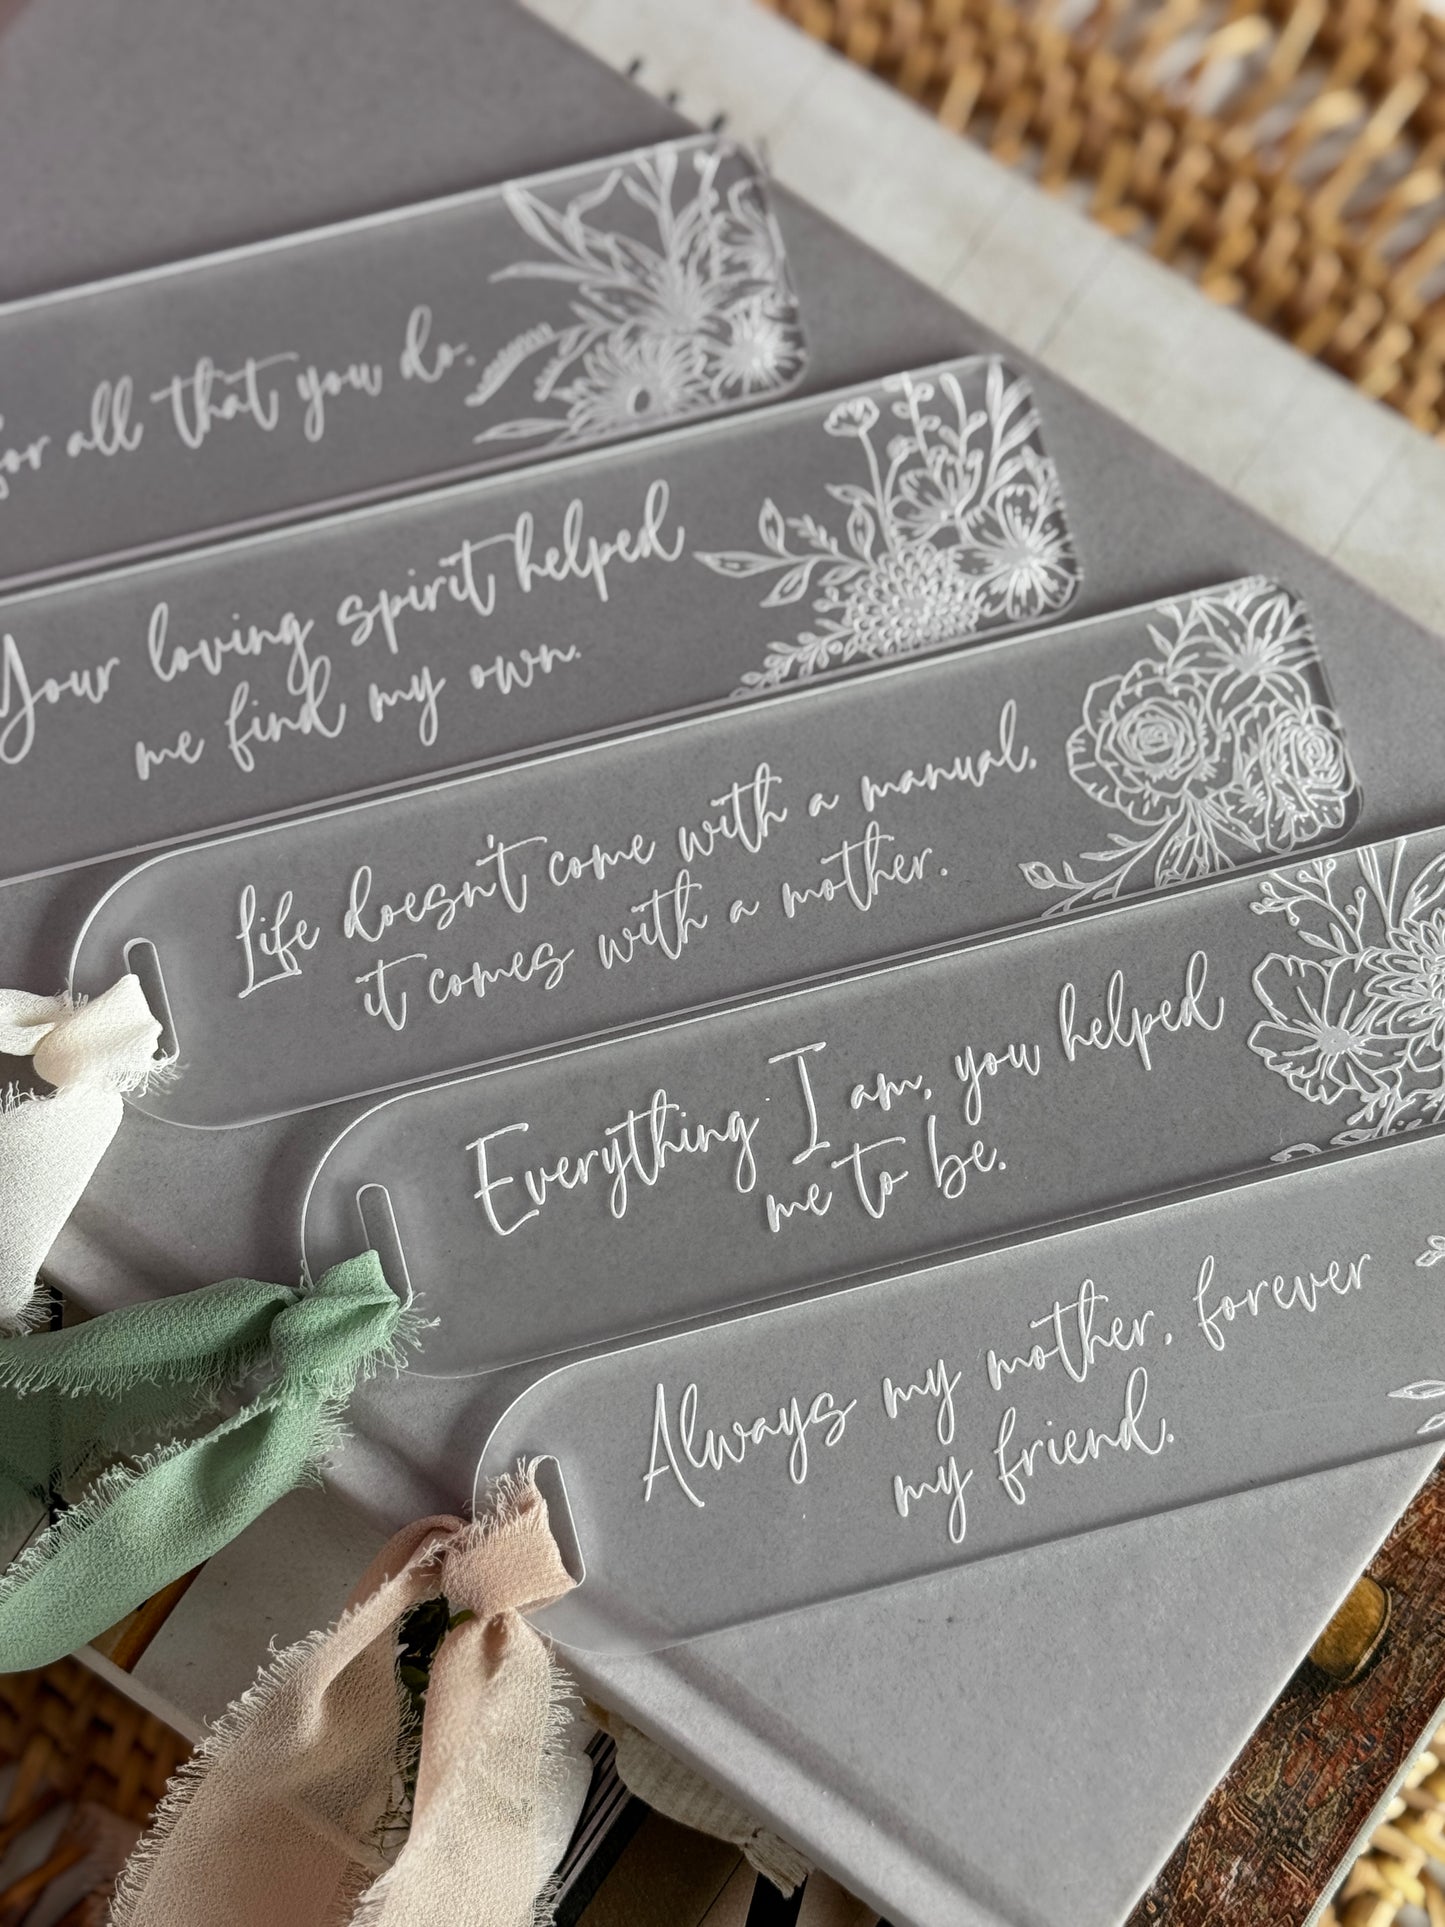 for all that you do.
Your loving spirit helped
me find my own.
Life doesn't come with a manual,
it comes with a mother.
Everything I am, you helped
me to be.
Always my mother, forever
my friend.